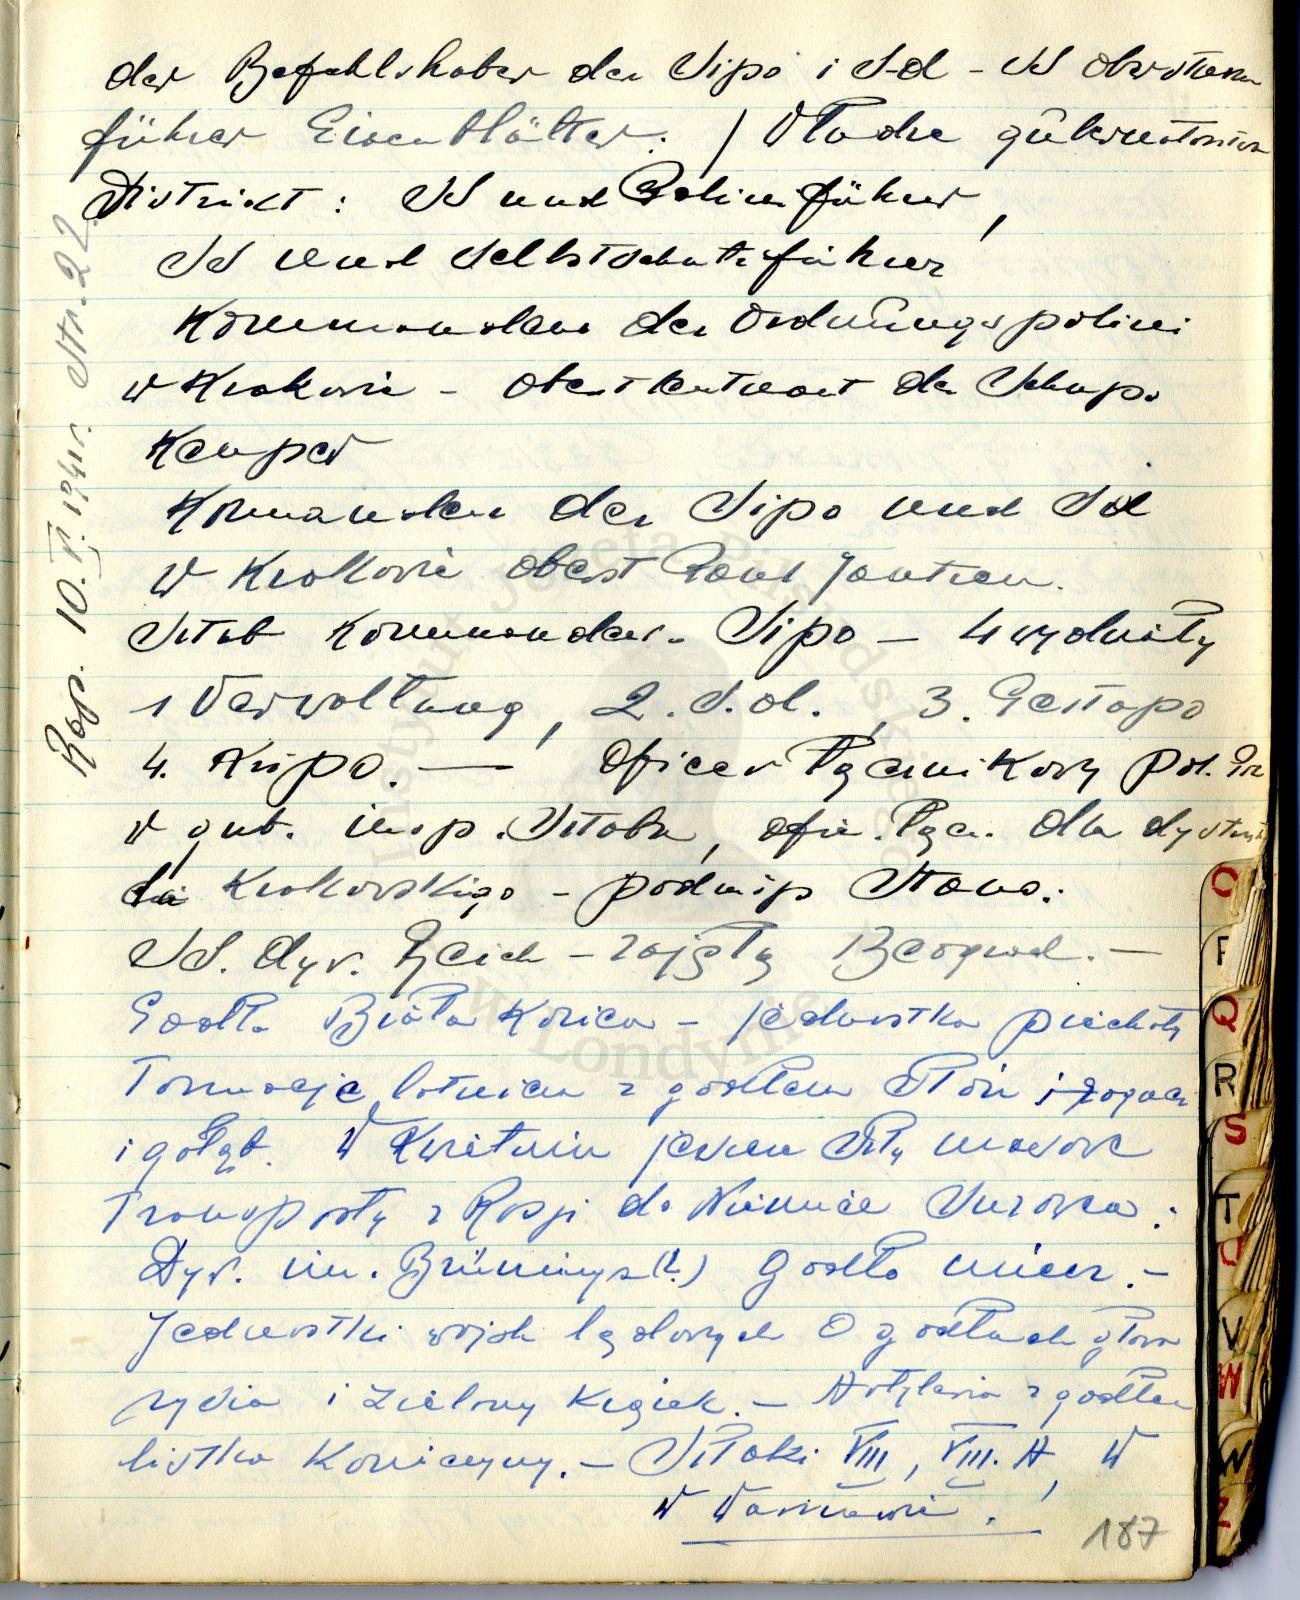 der Befehlshaber der Sipo i S-d - SS Obersturm
führer Eisenblätter. / Władze gubernatorstwa
Distrikt: SS und Polizeiführer,
SS und Selbstschutzführer
Kommandant der Ordnungspolizei
w Krakowie - Oberstleutnant der Schupo
Kemper
Komandeur der Sipo und Sd
w Krakowie Oberst Rand Jantzen.
Sztab Kommandeur. Sipo - 4 wydziały
1 Verwaltung, 2. S.d., 3. Gestapo
4. Kripo. — Oficer łącznikowy pol.
w gub. insp. Sztaba, ofic. łącz. dla dystryk
tu Krakowskiego - podinsp Stano.
SS. dyw. Reich - zajęła Beograd. -
Godła Biała Kozica - jednostka piechoty
Formacje lotnicze z godłem Słoń i
i gołąb. W Kwietniu jeden Stły
Transporty z Rosji do Niemiec Surowca.:
Dyw. im. Brüninga (?) godło miecz. -
Jednostki wojsk lądowych o godłach głowa
rydia i zielony Krążek. - Artyleria z godłem
listka Koniczyny. - Sztaki VIII, VIII. A, W
w Warszawie.
Rap. 10.V.1941r. Str. 22
Instytut Józefa Piłsudskiego
w Londynie
O
P
Q
R
S
T
U
V
W
W
Z
187